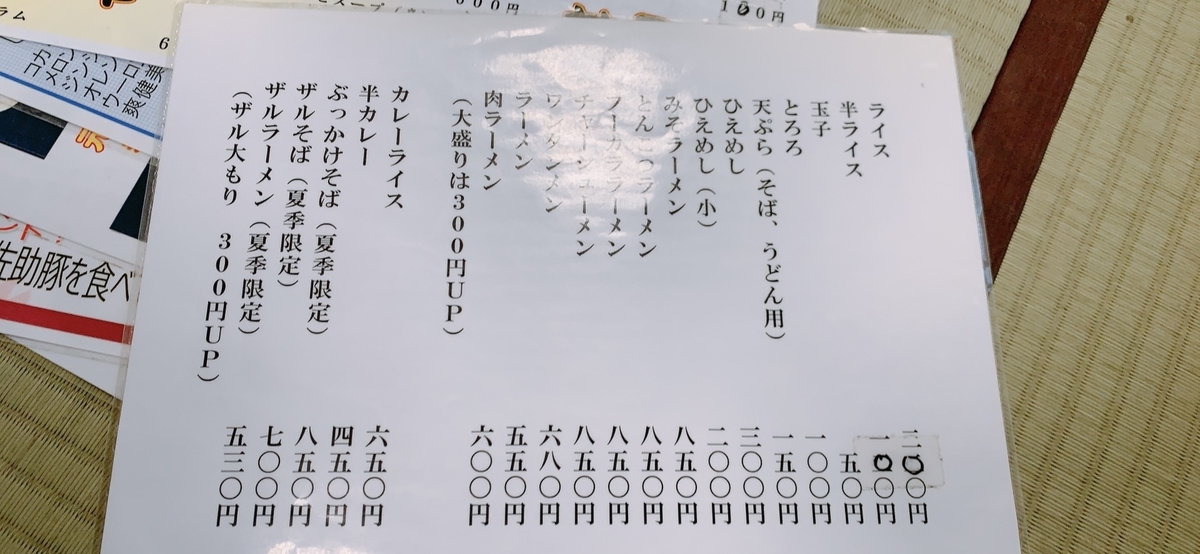 ライス 二〇〇円
半ライス 一〇〇円
玉子 五〇円
とろろ 一〇〇円
天ぷら（そば、うどん用） 一五〇円
ひえめし 三〇〇円
ひえめし（小） 二〇〇円
みそラーメン 八五〇円
とんこつラーメン 八五〇円
ラーメン 八五〇円
チャーシューメン 八五〇円
ワンタンメン 六八〇円
ラーメン 五五〇円
肉ラーメン 六〇〇円
（大盛りは300円UP）
カレーライス 六五〇円
半カレー 四五〇円
ぶっかけそば（夏季限定） 八五〇円
ザルそば（夏季限定） 七〇〇円
ザルラーメン（夏季限定） 五三〇円
（ザル大もり 300円UP）
ラム
佐助豚を食べ